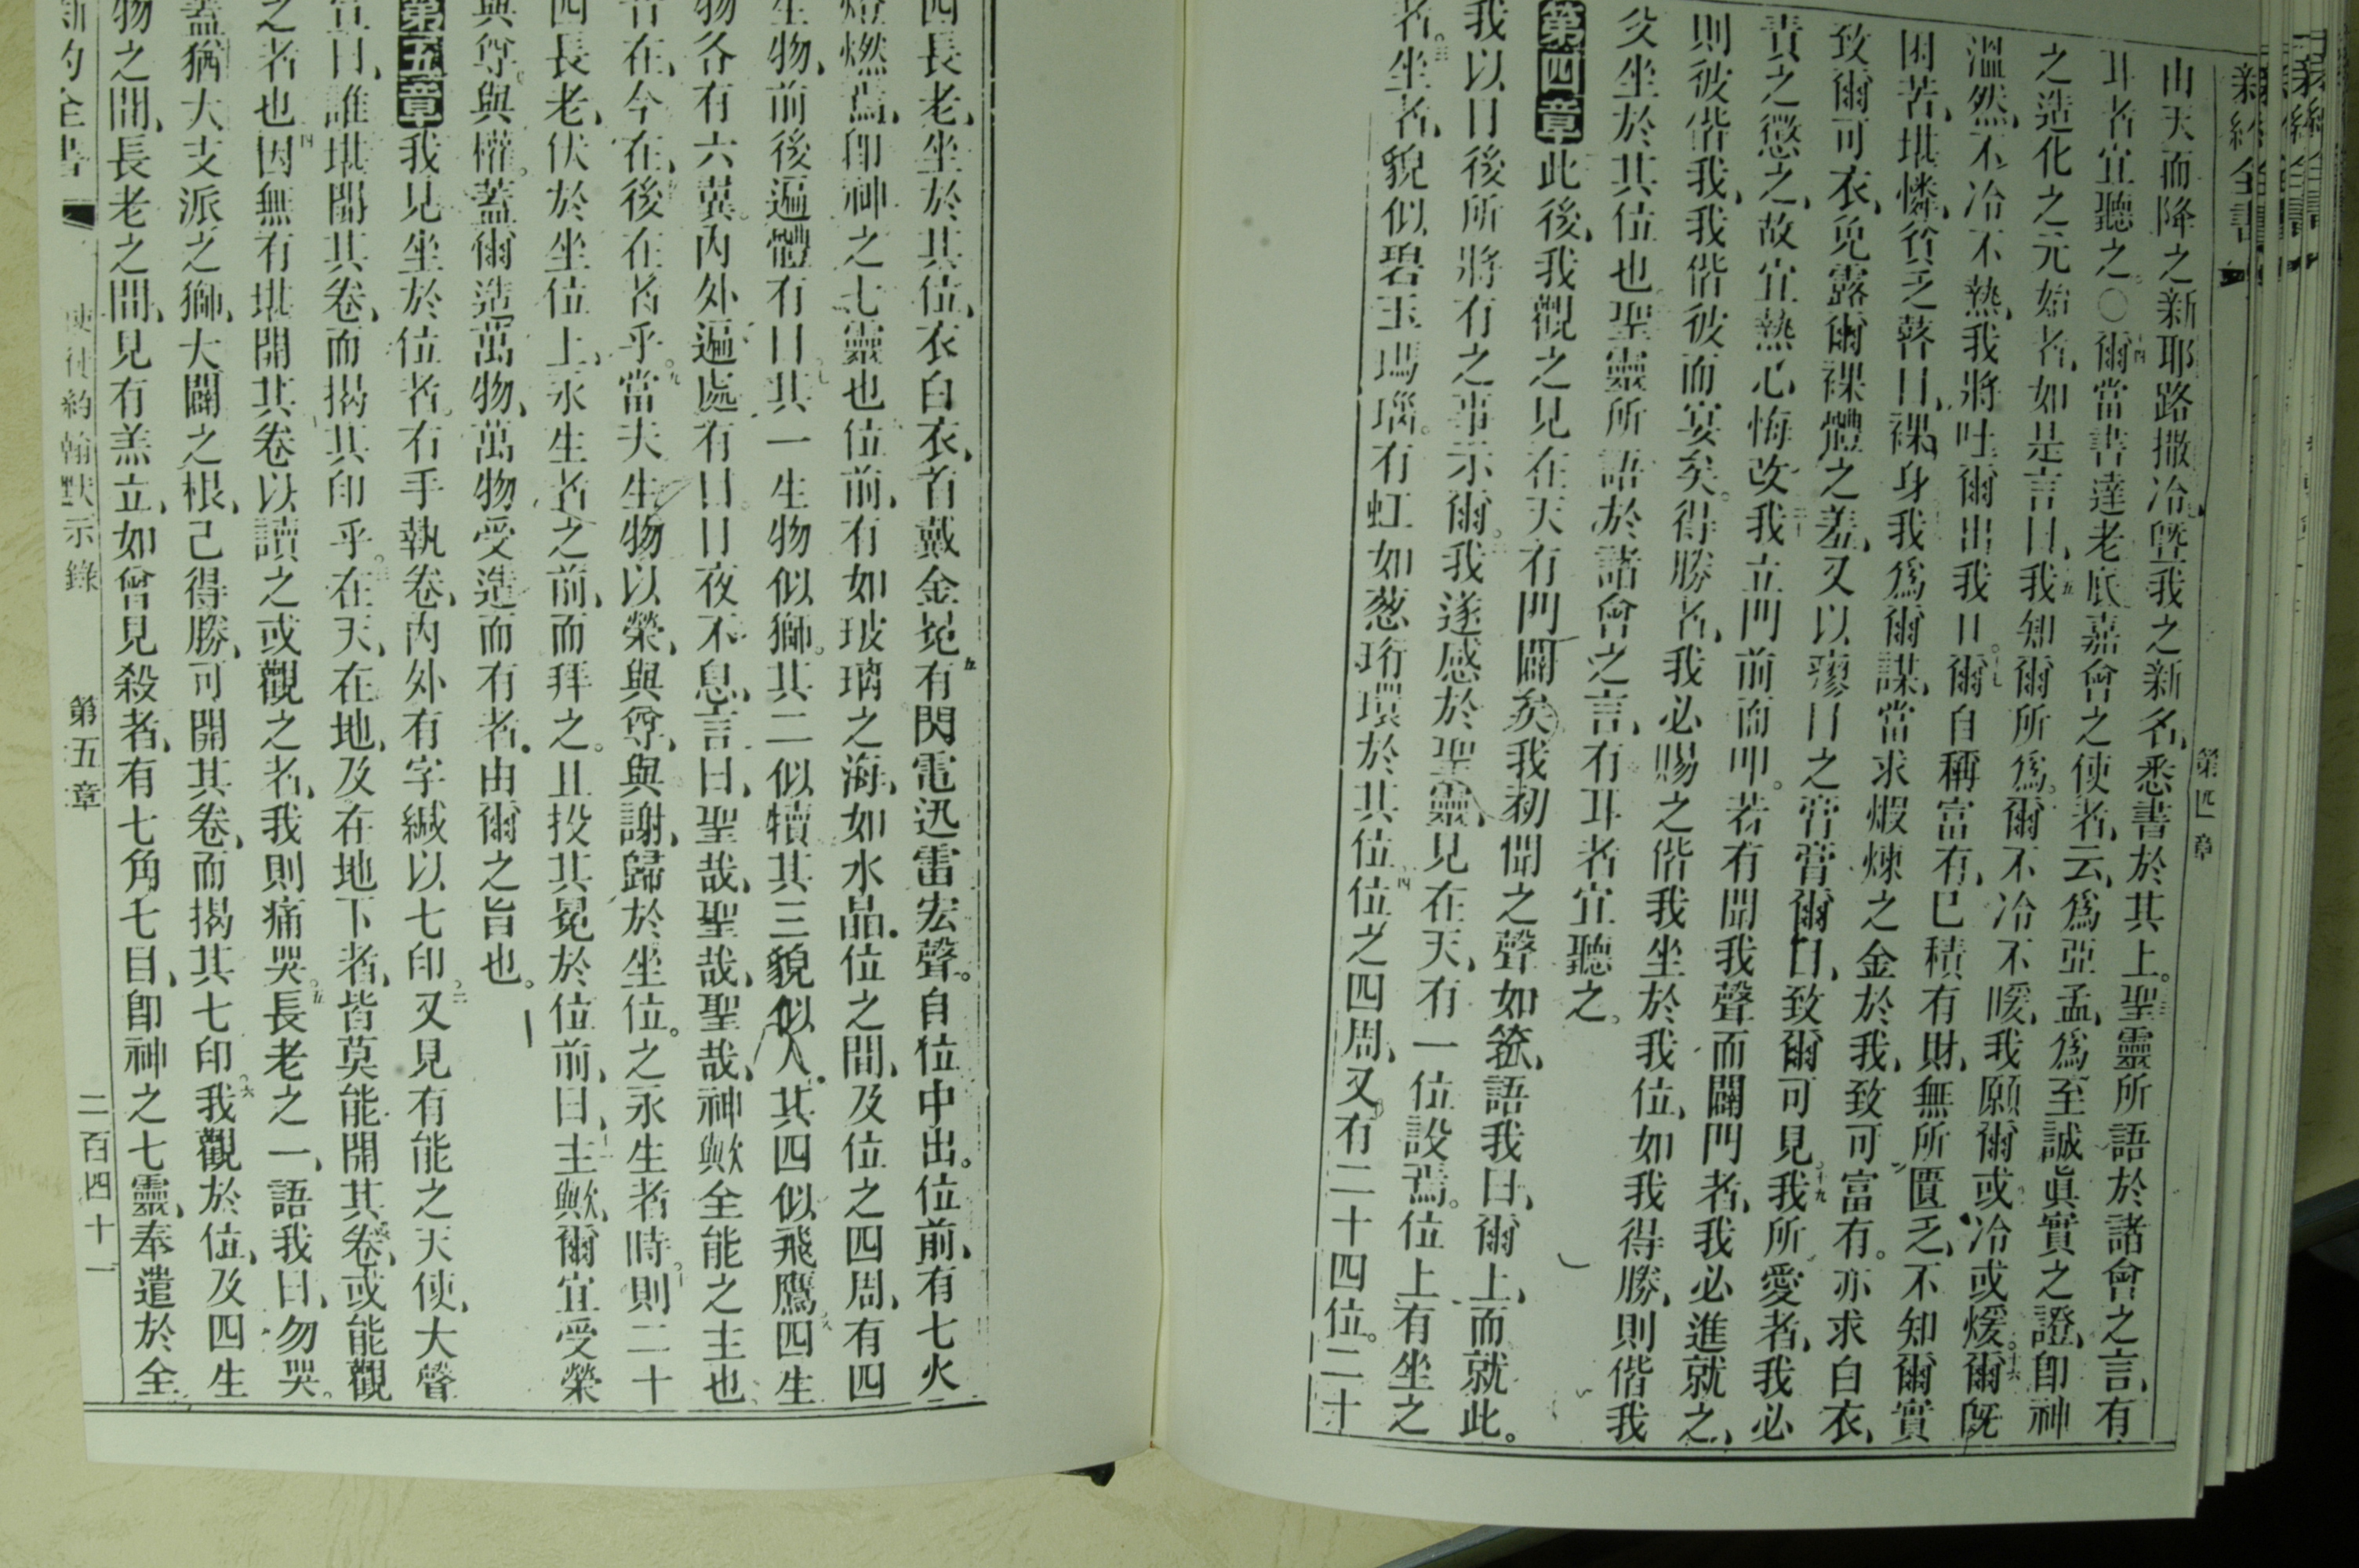 新約全書
第四章
由天而降之新耶路撒冷曁我之新名、悉書於其上。聖靈所語於諸會之言、有
耳者宜聽之。○爾當書達老底嘉會之使者、云、爲亞孟、爲至誠眞實之證、卽神
之造化之元始者、如是言曰、我知爾所爲。爾不冷不暖、我願爾或冷或煖。爾旣
溫然、不冷不熱、我將吐爾出我口。爾自稱富有、已積有財、無所匱乏、不知爾實
困苦、堪憐、貧乏、瞽目、裸身、我爲爾謀、當求煆煉之金於我、致可富有。亦求白衣、
致爾可衣、免露爾裸體之羞、又以瘳目之膏膏爾目、致爾可見。我所愛者、我必
責之懲之、故宜熱心悔改。我立門前而叩。若有聞我聲而闢門者、我必進就之、
則彼偕我、我偕彼而宴矣。得勝者、我必賜之偕我坐於我位、如我得勝、則偕我
父坐於其位也。聖靈所語於諸會之言、有耳者宜聽之。
第四章此後、我觀之見在天有門闢矣、我初聞之聲如號、語我曰、爾上、而就此。
我以日後所將有之事示爾。我遂感於聖靈、見在天、有一位設焉。位上有坐之
者。坐者、貌似碧玉瑪瑙。有虹如葱珩環於其位。位之四周、又有二十四位。二十
四長老、坐於其位、衣白衣、首戴金冕。有閃電迅雷宏聲。自位中出。位前、有七火
燈燃焉、卽神之七靈也。位前、有如玻璃之海、如水晶。位之間、及位之四周、有四
生物、前後遍體有目。其一生物似獅。其二似犢。其三貌似人。其四似飛鷹。四生
物各有六翼。內外遍處有目。日夜不息、言曰、聖哉、聖哉、聖哉、神歟全能之主也
昔在、今在、後在者乎。當夫生物以榮、與尊、與謝、歸於坐位。之永生者時。則二十
四長老、伏於坐位上、永生者之前、而拜之。且投其冕於位前、曰、主歟、爾宜受榮
與尊、與權。蓋爾造萬物、萬物受造而有者。由爾之旨也。
第五章我見坐於位者。右手執卷、內外有字緘以七印。又見有能之天使、大聲
宣曰、誰堪開其卷、而揭其印乎。在天、在地、及在地下者、皆莫能開其卷、或能觀
之者也。因無有堪開其卷以讀之或觀之者、我則痛哭。長老之一、語我曰、勿哭。
蓋猶大支派之獅、大闢之根、已得勝、可開其卷、而揭其七印。我觀於位、及四生
物之間、長老之間、見有羔立、如曾見殺者、有七角七目、卽神之七靈、奉遣於全
新約全書 使徒約翰默示錄 第五章 二百四十一